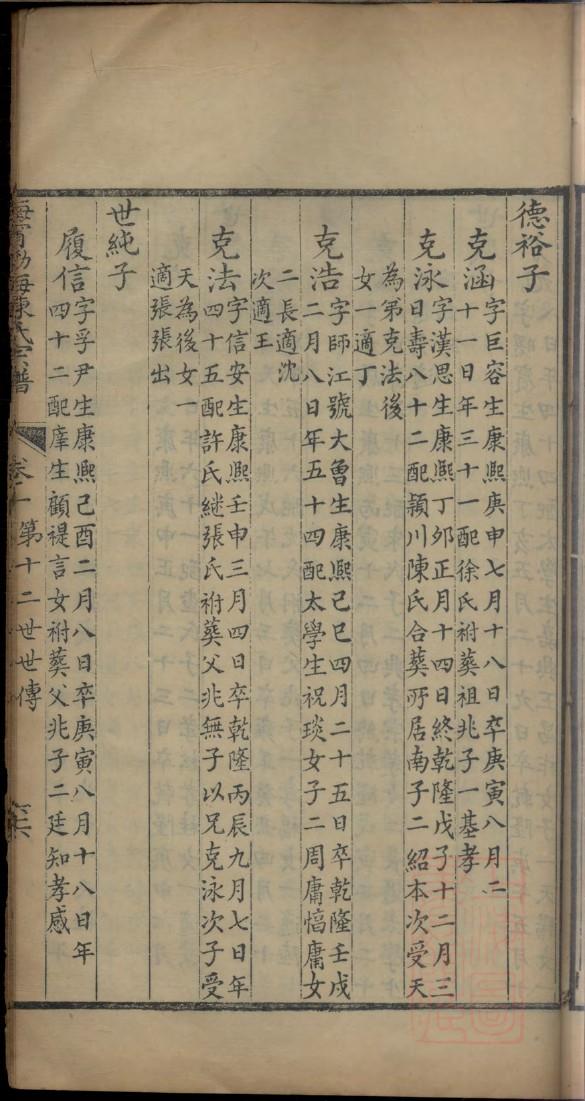 德裕子
克涵字巨容生康熙庚申七月十八日卒庚寅八月二
十一日年三十一配徐氏祔葬祖兆子一基孝
克泳字漢思生康熙丁夘正月十四日終乾隆戊子十二月三
日壽八十二配頴川陳氏合葬所居南子二紹本次受天
為弟克法後
女一適丁
克浩字師江號大魯生康熙己巳四月二十五日卒乾隆壬戌
二月八日年五十四配太學生祝琰女子二周庸慆庸女
二長適沈
次適王
克法字信安生康熙壬申三月四日卒乾隆丙辰九月七日年
四十五配許氏継張氏祔葬父兆無子以兄克泳次子受
天為後女一
適張張出
世純子
履信字孚尹生康熙己酉二月八日卒庚寅八月十八日年
四十二配庠生顧禔言女祔葬父兆子二廷知孝感
海陳氏宗譜
卷十 第十二世世傳